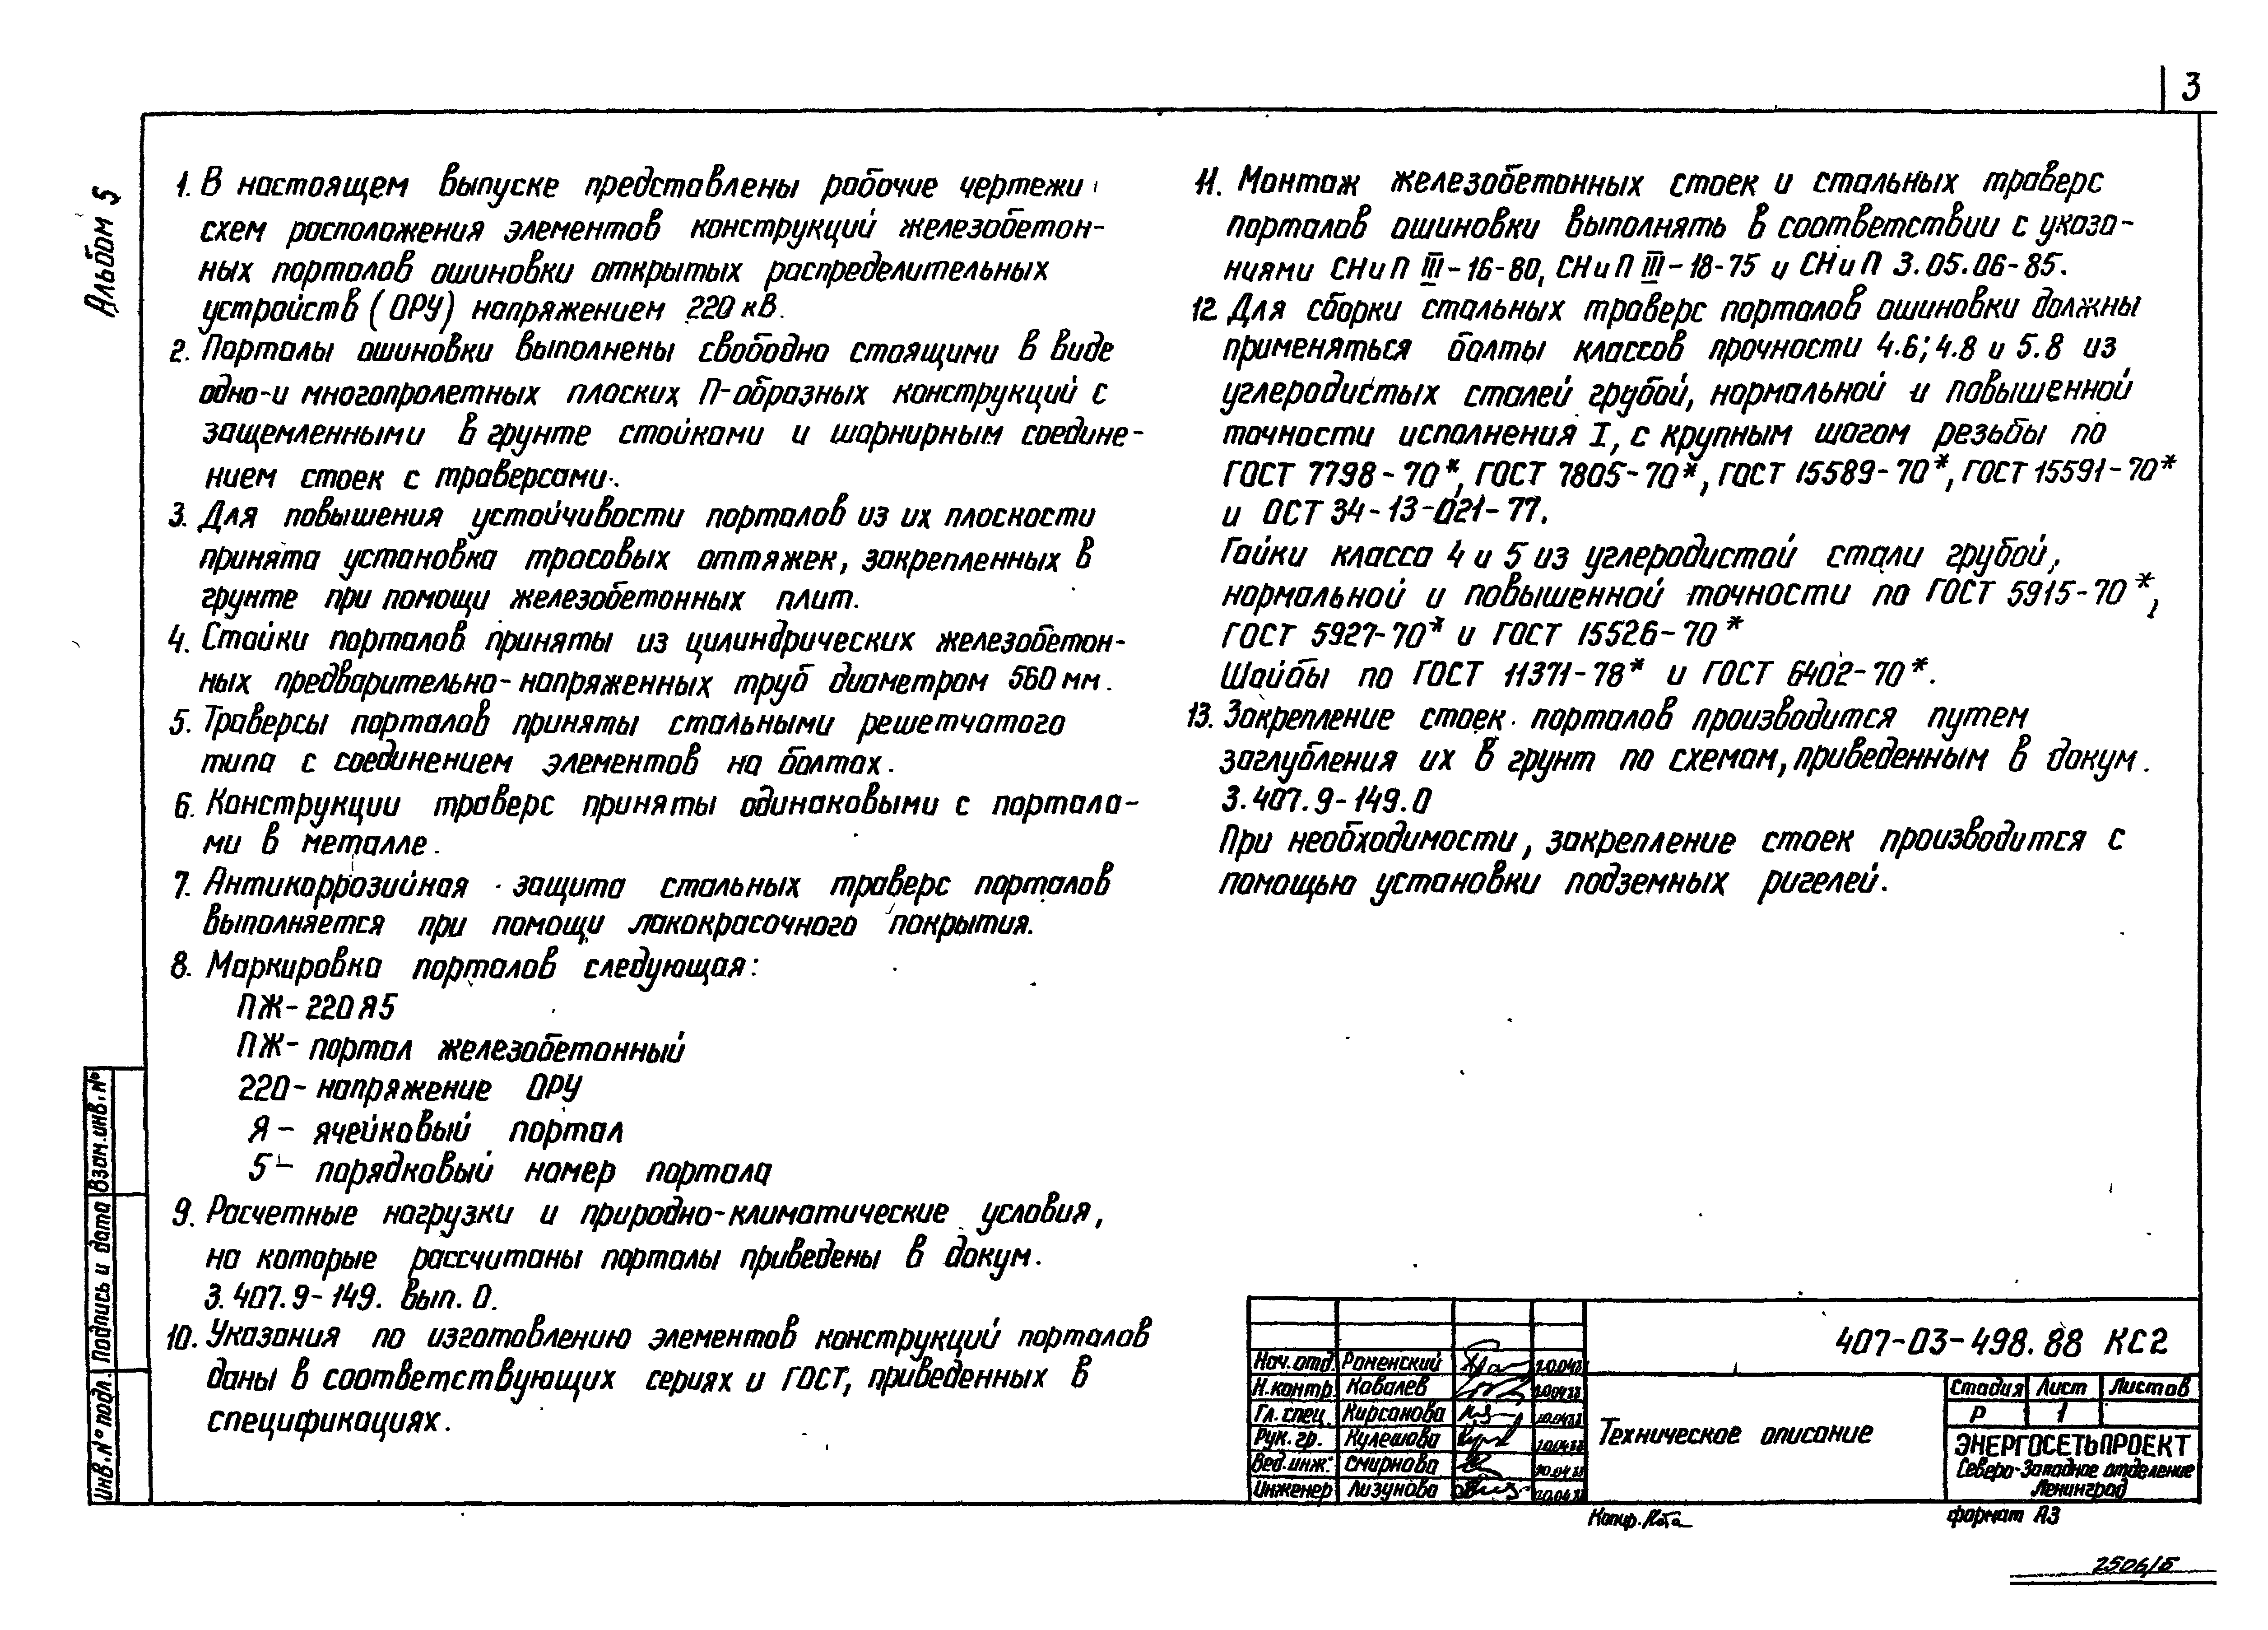 3
Альбом 5
1. В настоящем выпуске представлены рабочие чертежи
схем расположения элементов конструкций железобетон-
ных порталов ошиновки открытых распределительных
устройств (ОРУ) напряжением 220 кВ.
2. Порталы ошиновки выполнены свободно стоящими в виде
одно-и многопролетных плоских П-образных конструкций с
защемленными в грунте стойками и шарнирным соедине-
нием стоек с траверсами.
3. Для повышения устойчивости порталов из их плоскости
принята установка тросовых оттяжек, закрепленных в
грунте при помощи железобетонных плит.
4. Стойки порталов приняты из цилиндрических железобетон-
ных предварительно-напряженных труб диаметром 560 мм.
5. Траверсы порталов приняты стальными решетчатого
типа с соединением элементов на болтах.
6. Конструкции траверс приняты одинаковыми с портала-
ми в металле.
7. Антикоррозийная защита стальных траверс порталов
выполняется при помощи лакокрасочного покрытия.
8. Маркировка порталов следующая:
ПЖ-220Я5
ПЖ- портал железобетонный
220- напряжение ОРУ
Я - ячейковый портал
5 - порядковый номер портала
9. Расчетные нагрузки и природно-климатические условия,
на которые рассчитаны порталы приведены в докум.
3.407.9-149. вып. 0.
10. Указания по изготовлению элементов конструкций порталов
даны в соответствующих сериях и ГОСТ, приведенных в
спецификациях.
11. Монтаж железобетонных стоек и стальных траверс
порталов ошиновки выполнять в соответствии с указа-
ниями СНиП III-16-80, СНиП III-18-75 и СНиП 3.05.06-85.
12. Для сборки стальных траверс порталов ошиновки должны
применяться болты классов прочности 4.6; 4.8 и 5.8 из
углеродистых сталей грубой, нормальной и повышенной
точности исполнения I, с крупным шагом резьбы по
ГОСТ 7798-70*, ГОСТ 7805-70*, ГОСТ 15589-70*, ГОСТ 15591-70*
и ОСТ 34-13-021-77.
Гайки класса 4 и 5 из углеродистой стали грубой,
нормальной и повышенной точности по ГОСТ 5915-70*,
ГОСТ 5927-70* и ГОСТ 15526-70*
Шайбы по ГОСТ 11371-78* и ГОСТ 6402-70*.
13. Закрепление стоек порталов производится путем
заглубления их в грунт по схемам, приведенным в докум.
3.407.9-149.0
При необходимости, закрепление стоек производится с
помощью установки подземных ригелей.
Взам.инв.№
Подпись и дата
Инв.№ подл.
407-03-498.88 КС2
Нач.отд. Роменский 20.04.88
Н.контр. Ковалев 20.04.88
Гл.спец. Кирсанова 20.04.88
Рук.гр. Кулешова 20.04.88
Вед.инж. Смирнова 20.04.88
Инженер Лизунова 20.04.88
Техническое описание
Стадия Лист Листов
Р 1
ЭНЕРГОСЕТЬПРОЕКТ
Северо-Западное отделение
Ленинград
Копир.
формат А3
2506/5